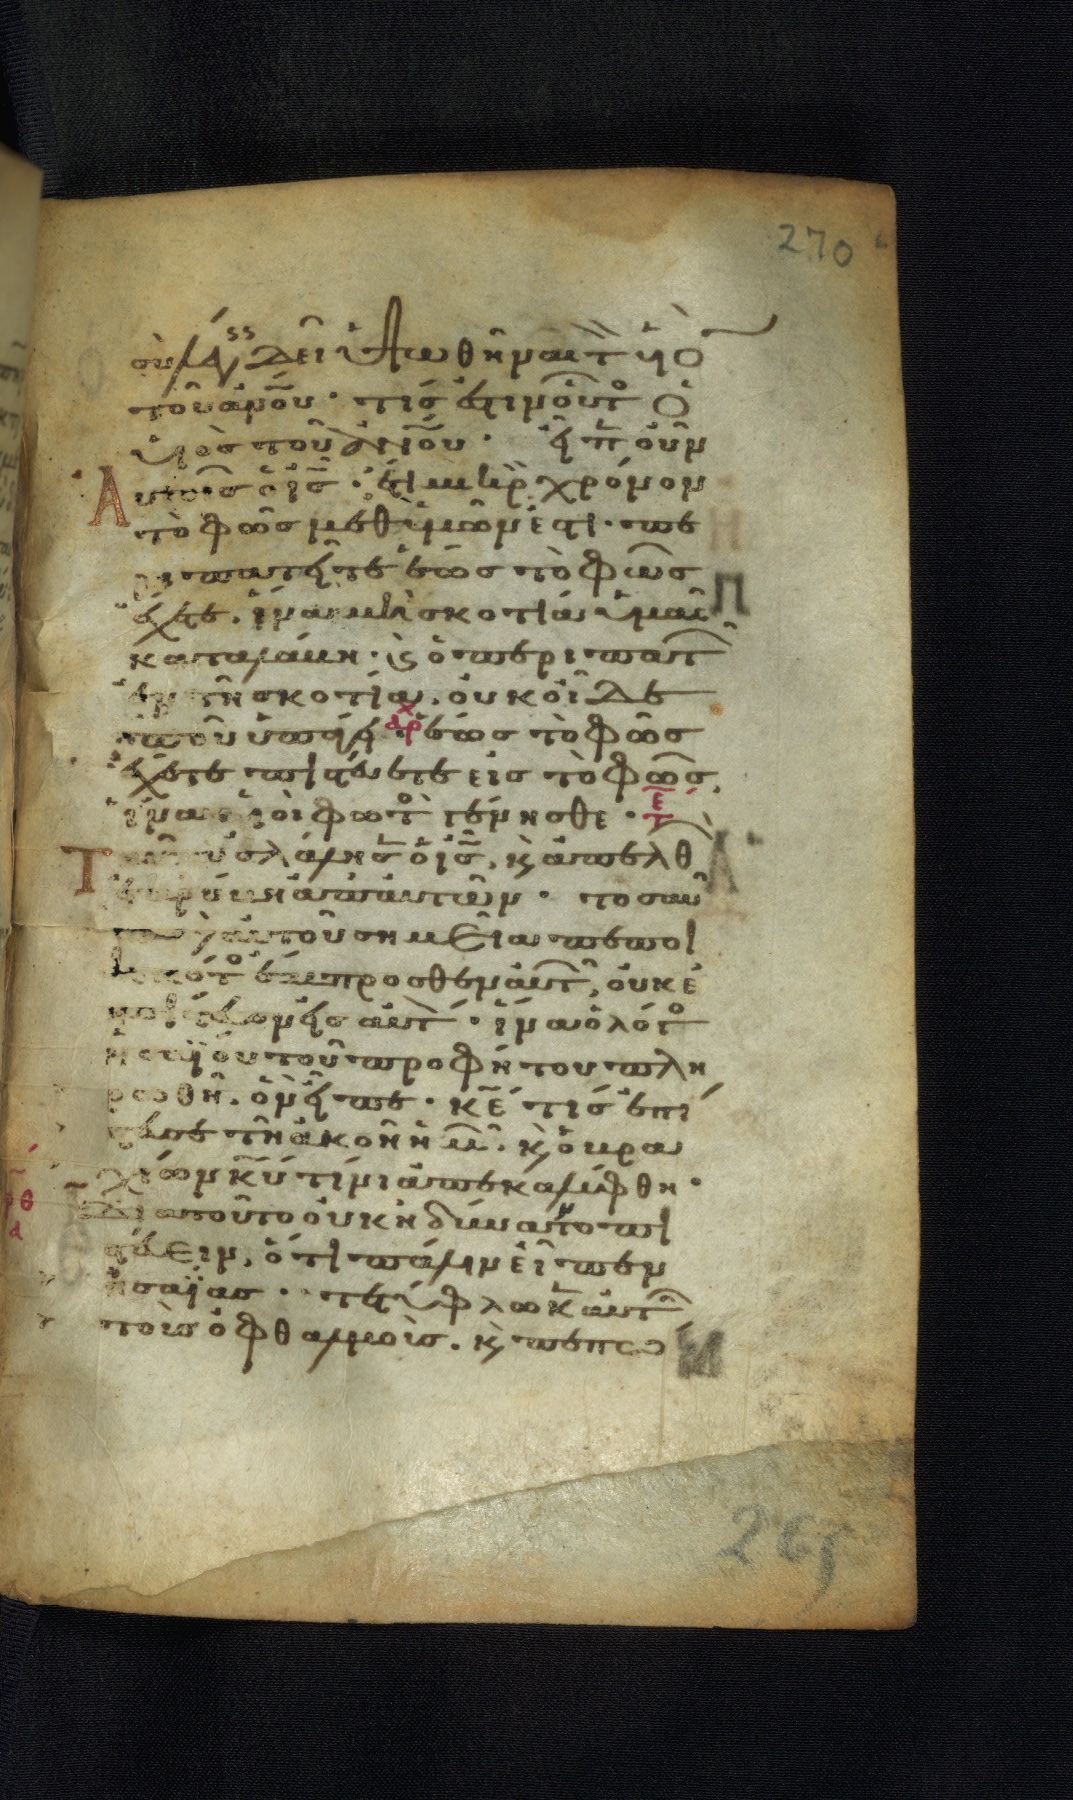 270
σὺ λέγεις δεῖ ὑψωθῆναι τ υν
τοῦ ανου· τίς ἐστιν οὗτος ὁ
υἱὸς τοῦ ανου· εἶπεν οὖν
αυτοῖς ὁ ις· ἔτι μικρὸν χρόνον
τὸ φῶς μεθ ἡμῶν ἐστι· πε
ριπατεῖτε ἕως τὸ φῶς
ἔχετε. ἵνα μὴ σκοτία ὑμᾶς
καταλάβη· κ ὁ περιπατ
ἐν τῆ σκοτία. οὐκ οἶδε
ποῦ ὑπάγει· ἕως τὸ φῶς
αρχ
ἔχετε πιστεύετε εἰς τὸ φῶς,
ἵνα υἱοὶ φωτὸς γένησθε·
τε
Ταῦτα ἐλάλησεν ὁ ις, κ ἀπελθ
ἐκρύβη ἀπ αὐτῶν· τοσαῦ
τα δὲ αὐτοῦ σημεῖα πεποι
ηκότος ἔμπροσθεν αὐτῶν, οὐκ ἐ
πίστευον εἰς αὐτὸν· ἵνα ὁ λόγος
ἠσαΐου τοῦ προφήτου πλη
ρωθῆ. ὃν εἶπε· κε τίς ἐπί
στευσε τῆ ἀκοῆ ἡμῶν. κ ὁ βρα
χίων κυ τίνι ἀπεκαλύφθη·
Διατοῦτο οὐκ ἠδύναντο πι
στεύειν, ὅτι πάλιν εἶπεν
ἠσαΐας· τετύφλωκεν αὐτῶν
τοὺς ὀφθαλμοὺς. κ πεπω
265